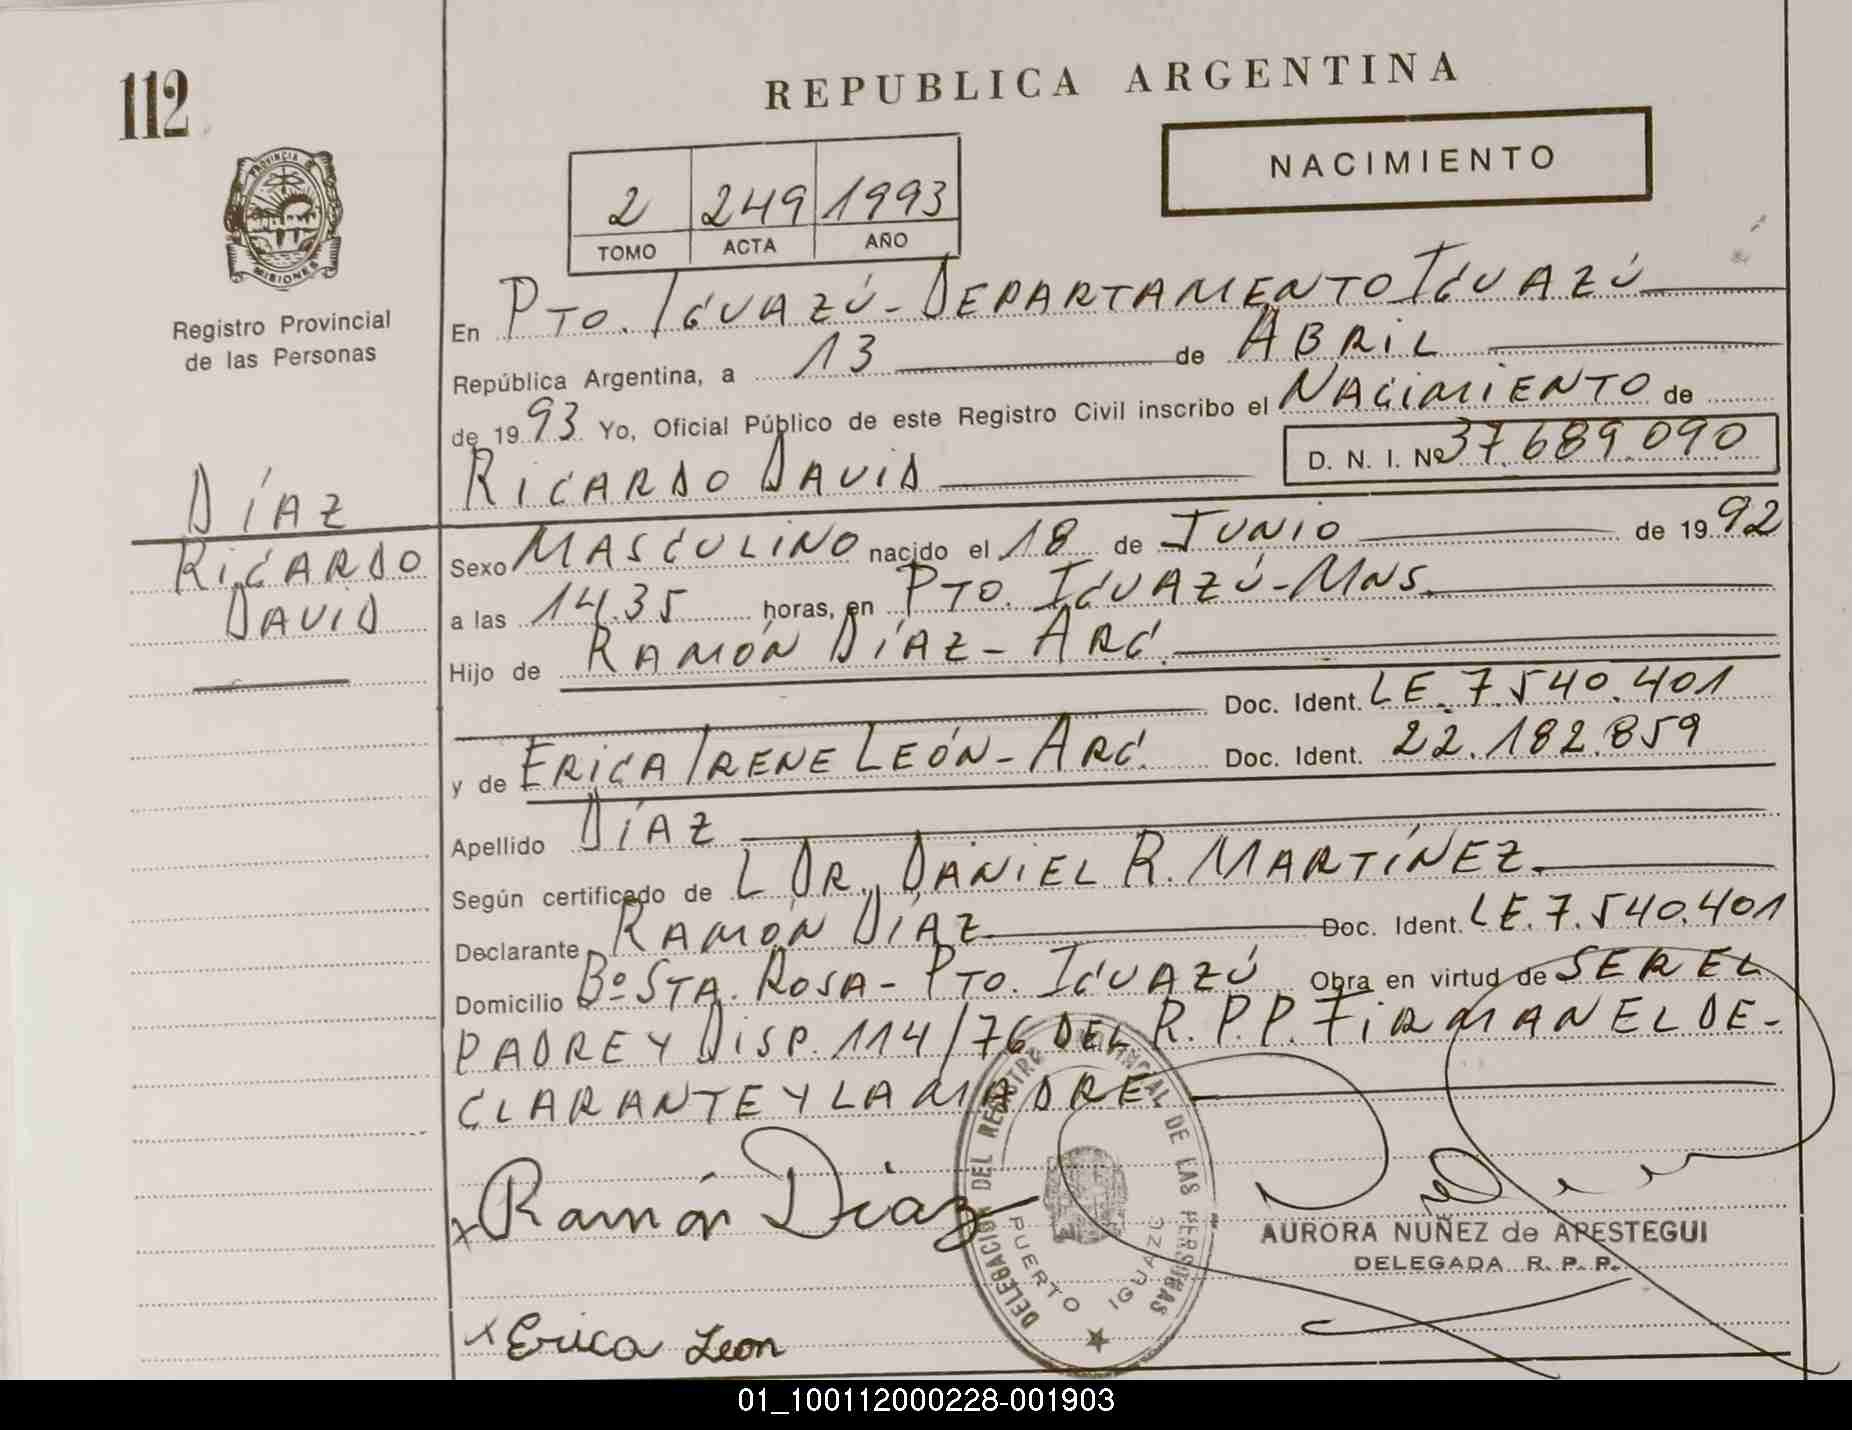 112
REPUBLICA ARGENTINA
NACIMIENTO
2 249 1993
TOMO ACTA AÑO
PROVINCIA DE MISIONES
Registro Provincial
de las Personas
En PTO. IGUAZÚ - DEPARTAMENTO IGUAZÚ
República Argentina, a 13 de ABRIL
de 1993 Yo, Oficial Público de este Registro Civil inscribo el NACIMIENTO de
RICARDO DAVID D. N. I. Nº 37.689.090
DÍAZ
RICARDO
DAVID
Sexo MASCULINO nacido el 18 de JUNIO de 1992
a las 14.35 horas, en PTO. IGUAZÚ - MNS.
Hijo de RAMÓN DÍAZ - ARG.
Doc. Ident. LE. 7.540.401
y de ERICA IRENE LEÓN - ARG. Doc. Ident. 22.182.859
Apellido DÍAZ
Según certificado de L DR. DANIEL R. MARTÍNEZ.
Declarante RAMÓN DÍAZ Doc. Ident. LE. 7.540.401
Domicilio Bº STA. ROSA - PTO. IGUAZÚ Obra en virtud de SER EL
PADRE Y DISP. 114/76 DEL R. P. P. FIRMAN EL DE-
CLARANTE Y LA MADRE
x Ramón Díaz
DELEGACION DEL REGISTRO PROVINCIAL DE LAS PERSONAS
PUERTO IGUAZU
AURORA NUÑEZ de ARESTEGUI
DELEGADA R. P. P.
x Erica Leon
01_100112000228-001903